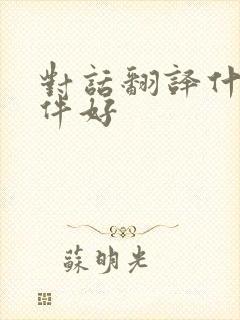 對話翻譯什
件好
蘇明光